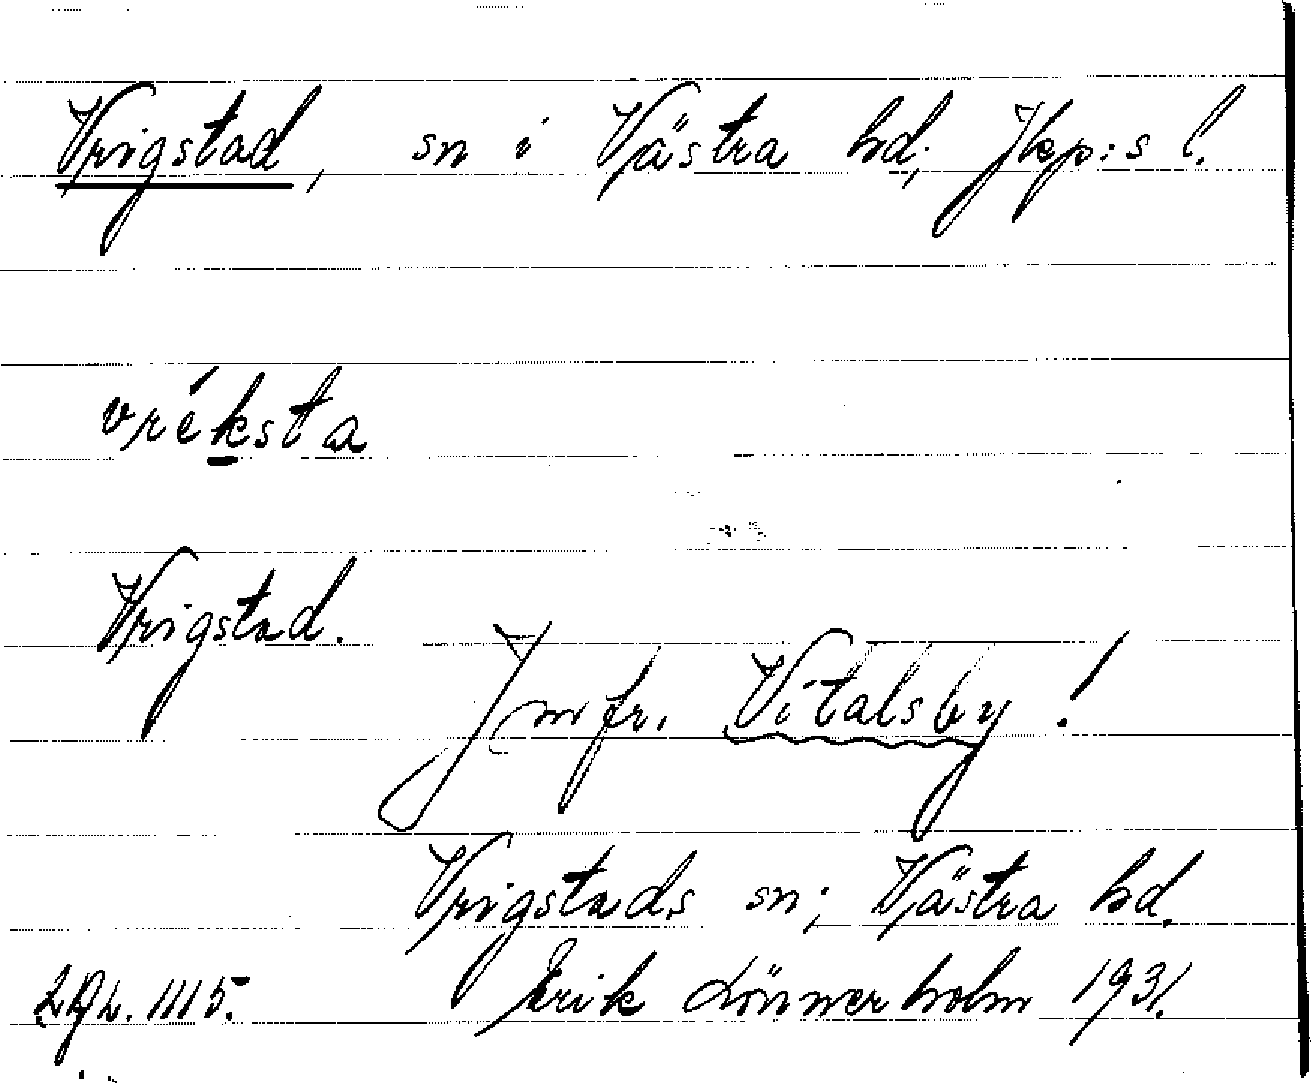 Vrigstad, sn i Västra hd; Jkp:s l.
vréksta
Vrigstad.
Jmfr. Vitalsby!
Vrigstads sn; Västra hd.
Erik Lönnerholm 1931.
1115.